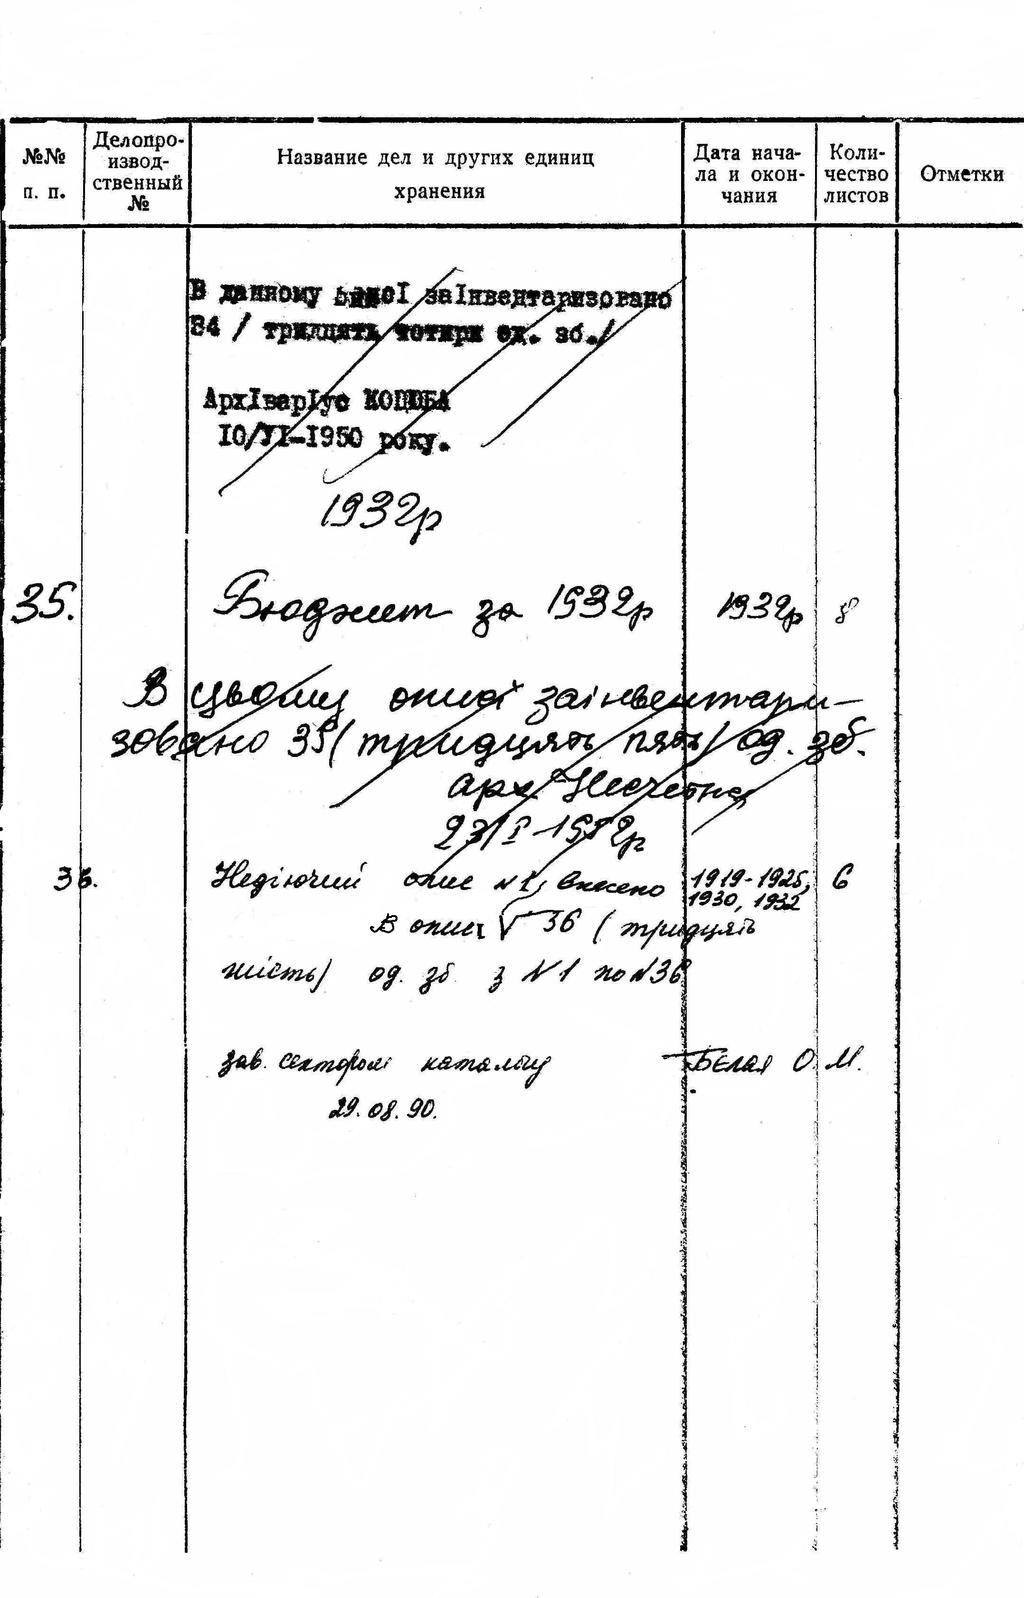 №№ п. п.
Делопро-
извод-
ственный
№
Название дел и других единиц
хранения
Дата нача-
ла и окон-
чания
Коли-
чество
листов
Отметки
В данному заінвентаризовано
34 / тридцять чотири од. зб./
Архіваріус КОЦЮБА
10/УІ-1950 року.
1932р
35. Бюджет за 1932р 1932р 8
В цьому описі заінвентари-
зовано 35 (тридцять пять) од. зб.
арх.
36. Недіючий опис №1, внесено 1919-1925, 6
1930, 1932
В опис 36 (тридцять
шість) од. зб з №1 по №36
зав. сектором каталогу Белая О.М.
29.08.90.